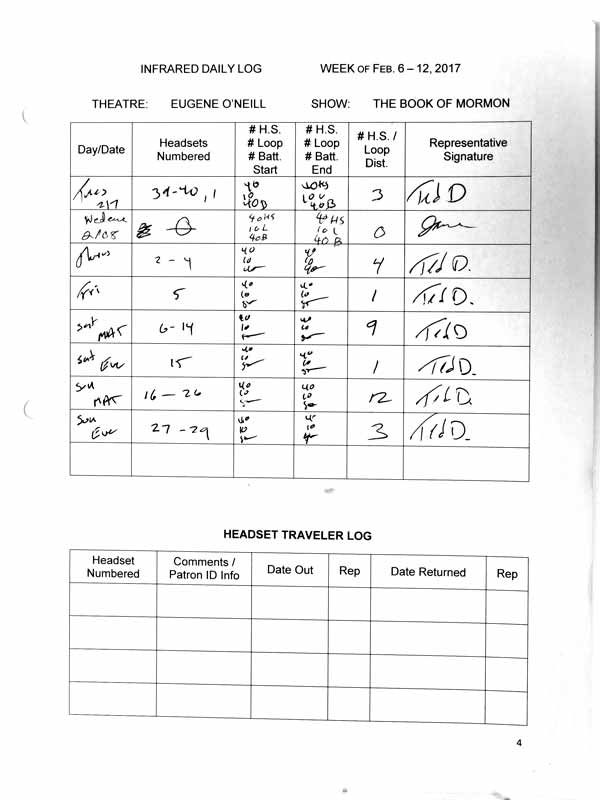 INFRARED DAILY LOG WEEK OF FEB. 6 – 12, 2017
THEATRE: EUGENE O'NEILL SHOW: THE BOOK OF MORMON
Day/Date Headsets Numbered # H.S. # Loop # Batt. Start # H.S. # Loop # Batt. End # H.S. / Loop Dist. Representative Signature
Tues 2/7 39-40, 1 40 10 40B 40HS 10L 40B 3 Ted D
2/08 40HS 10L 40B 40HS 10L 40B 0
Thurs 2-4 40 10 40 10 4 Ted D.
Fri 5 40 10 40 10 1 Ted D.
Sat MAT 6-14 40 10 40 10 9 Ted D
Sat Eve 15 40 10 40 10 1 Ted D.
Sun MAT 16-26 40 10 40 10 12 Ted D.
Sun Eve 27-29 40 10 10 3 Ted D.
HEADSET TRAVELER LOG
Headset Numbered Comments / Patron ID Info Date Out Rep Date Returned Rep
4